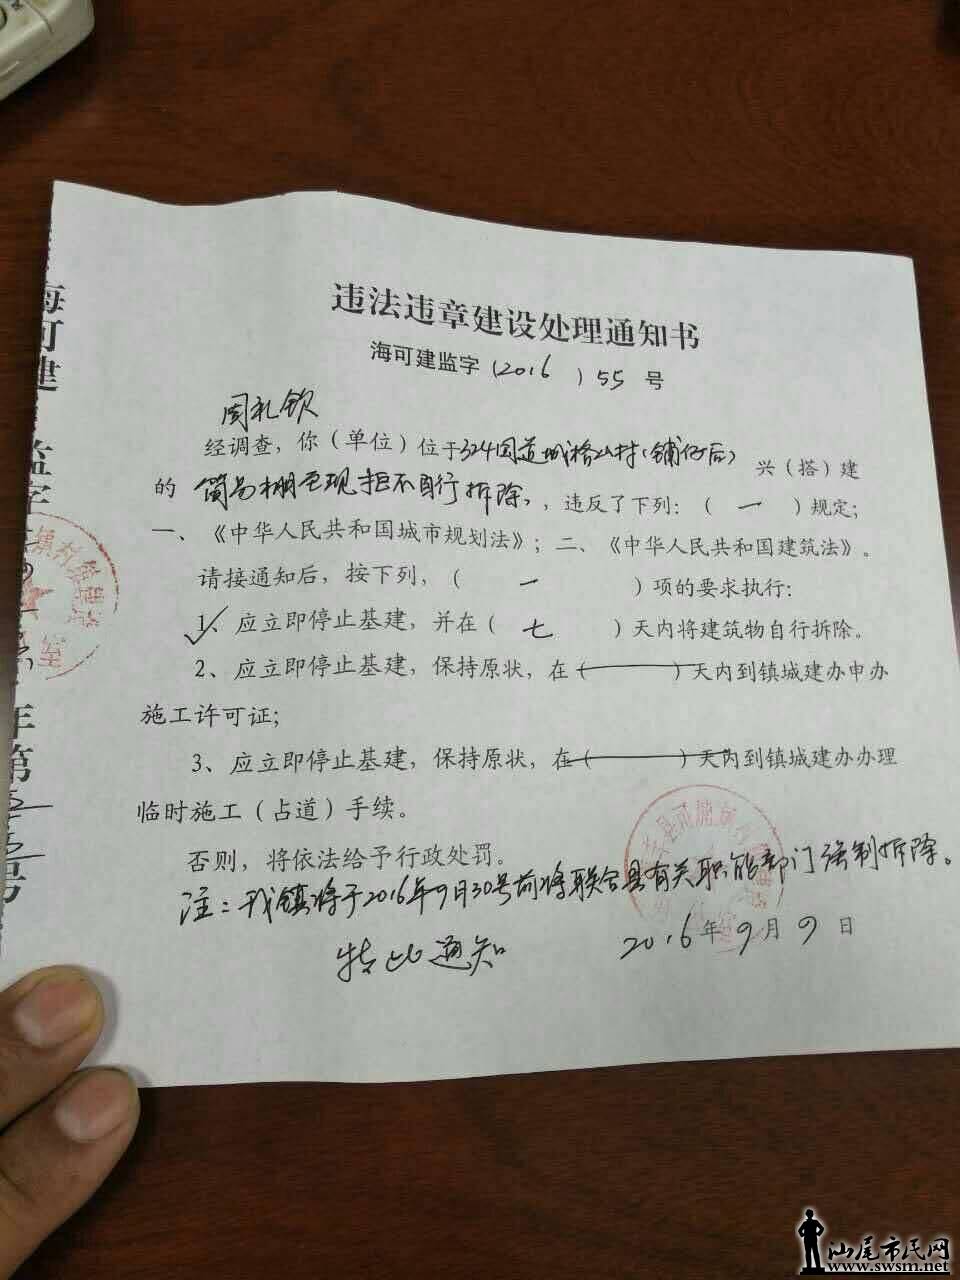 违法违章建设处理通知书
海可建监字(2016)55号
周礼钦
经调查，你（单位）位于324国道城格山村(铺仔后)兴（搭）建
的简易棚至现拒不自行拆除，，违反了下列：（一）规定；
一、《中华人民共和国城市规划法》；二、《中华人民共和国建筑法》。
请接通知后，按下列，（一）项的要求执行：
1、应立即停止基建，并在（七）天内将建筑物自行拆除。
2、应立即停止基建，保持原状，在（ ）天内到镇城建办申办
施工许可证；
3、应立即停止基建，保持原状，在（ ）天内到镇城建办办理
临时施工（占道）手续。
否则，将依法给予行政处罚。
注：我镇将于2016年9月30号前将联合县有关职能部门强制拆除。
特此通知
2016年9月9日
海可建监字
年第
号
汕尾市民网
www.swsm.net